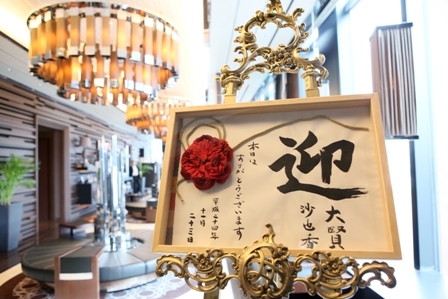 迎
大賢
沙也香
本日は
ありがとうございます
平成二十四年
十一月
二十三日